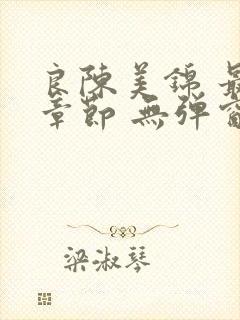 良陳美錦 最
章節 無彈窗
梁淑琴